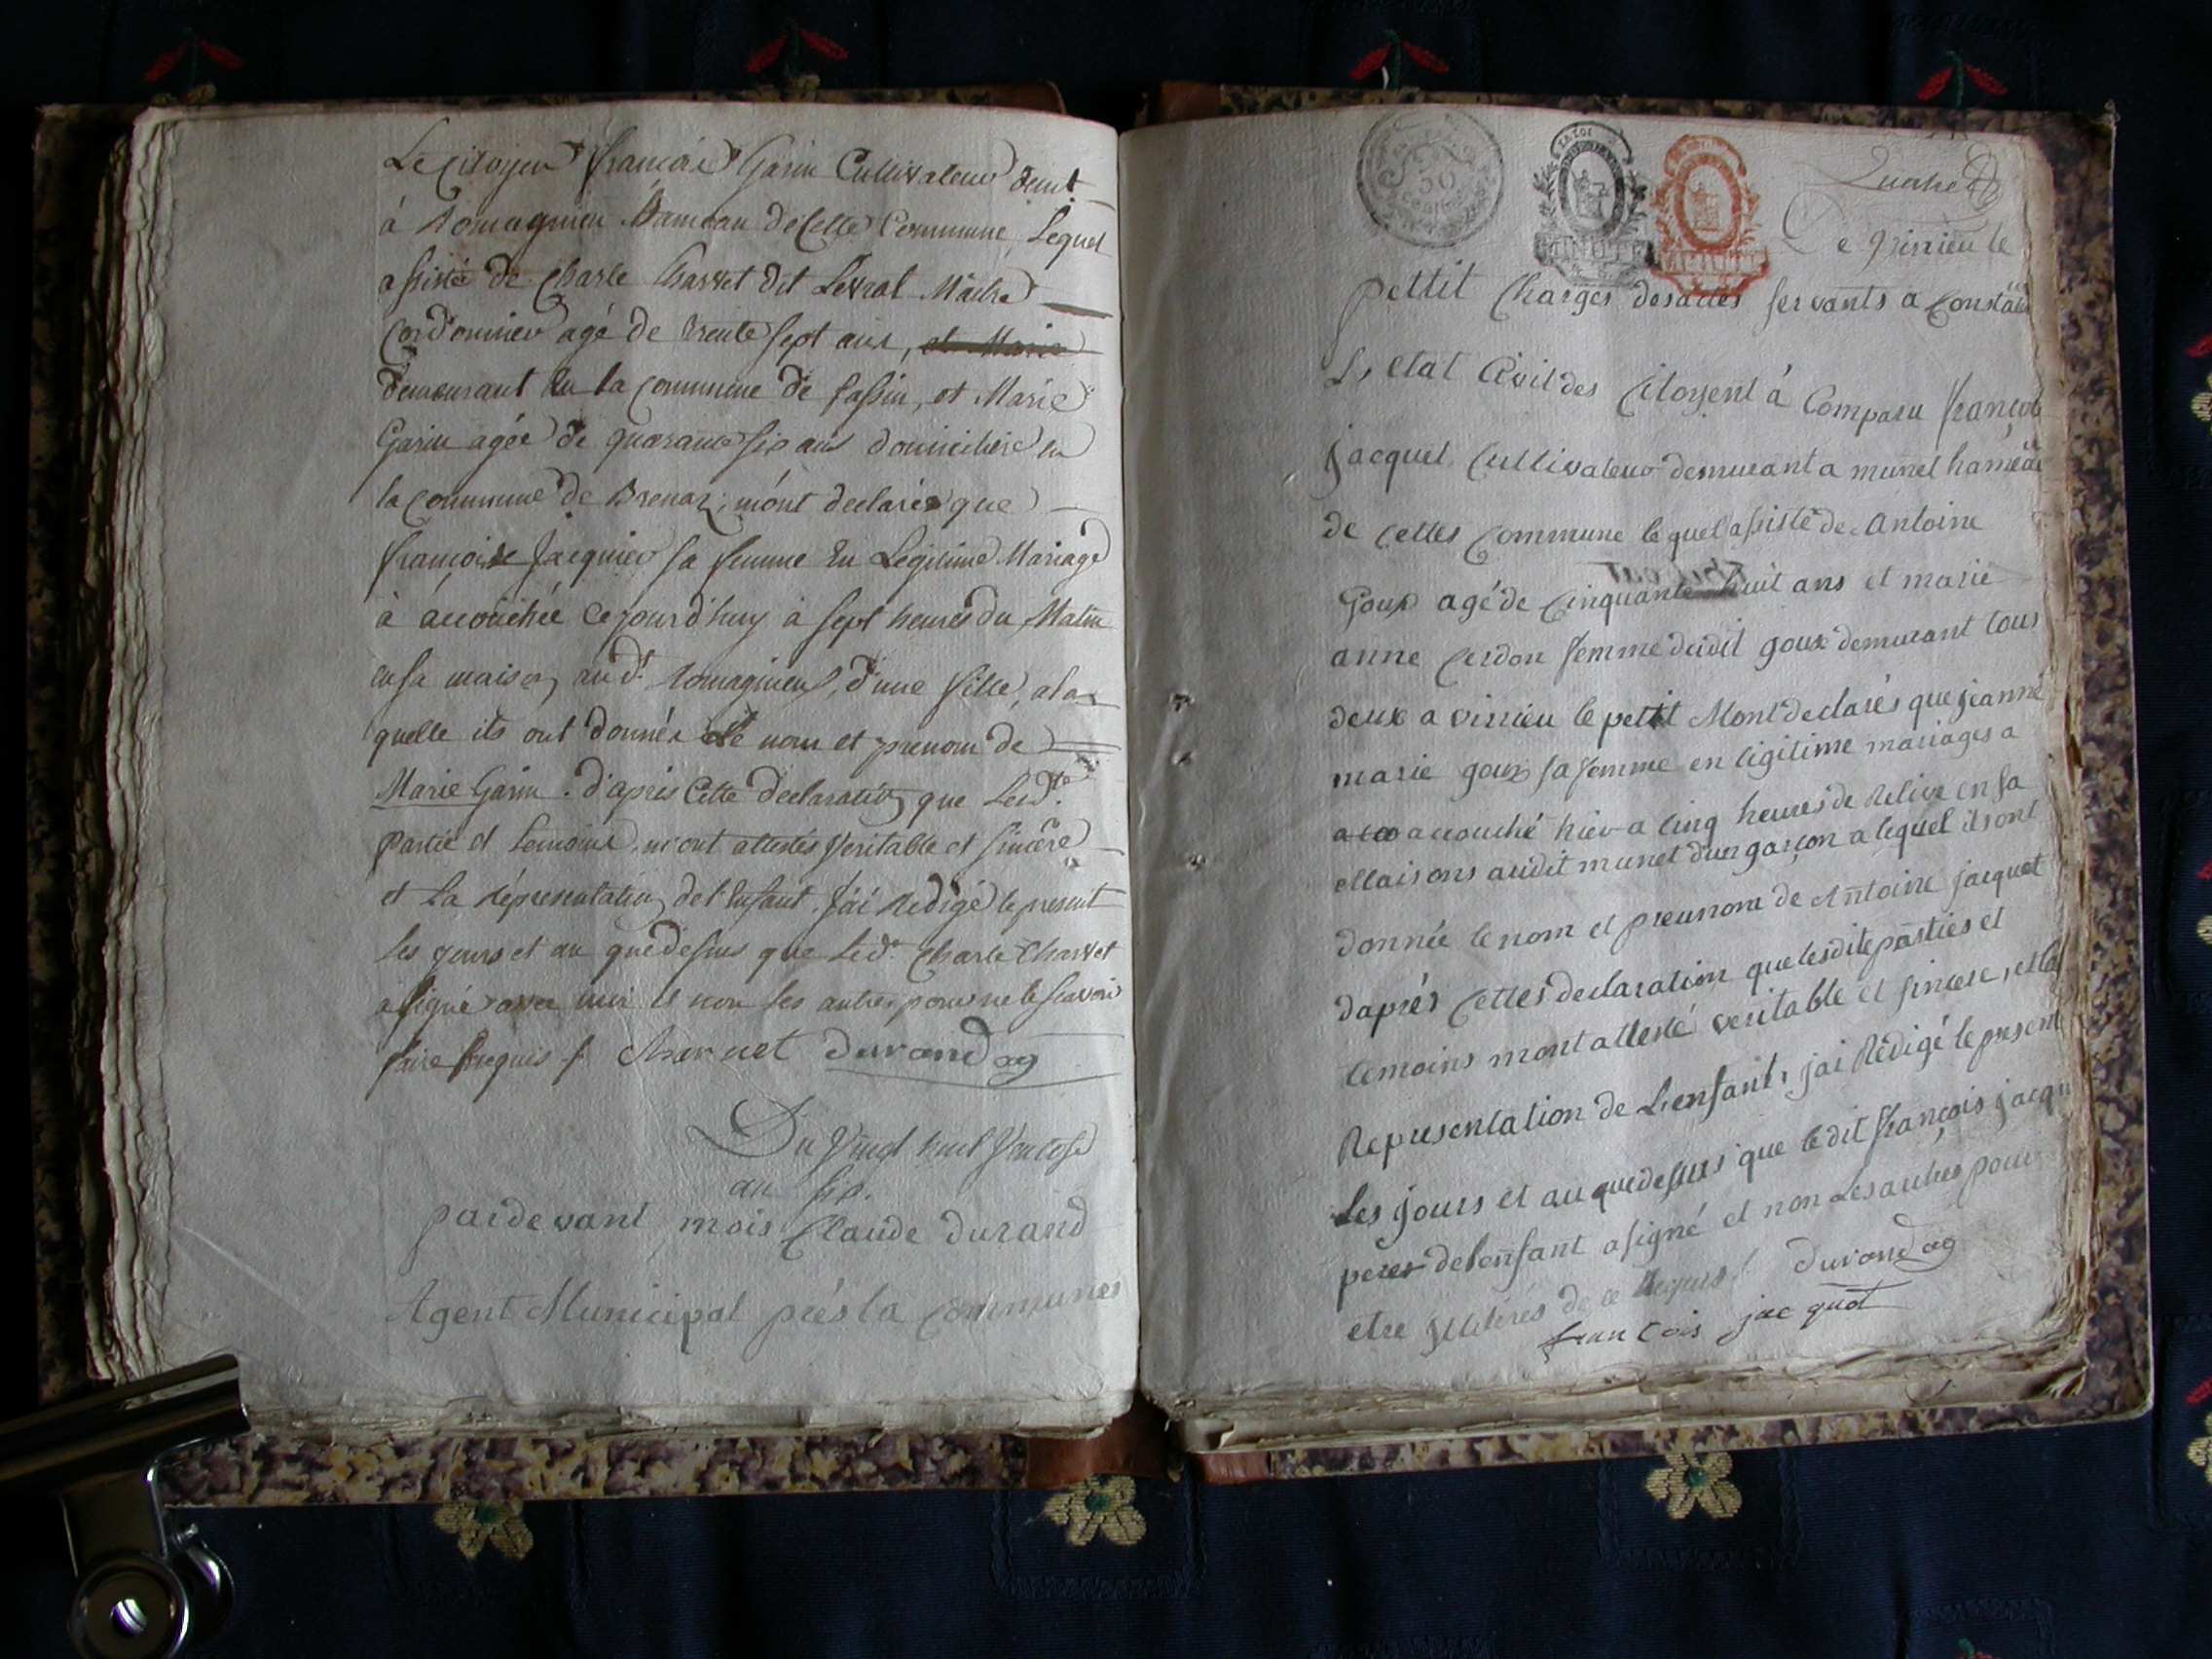 Le Citoyen françois Garin Cultivateur demt
à Romagnieu hameau de Cette Commune, Lequel
assisté de Charle Charvet dit Levrat Maitre
Cordonnier agé de trente sept ans, et Marie
demeurant en la commune de Passin, et Marie
Garin agée de quarante six ans domiciliée en
la commune de Brenaz, m'ont declarés que
françoise Jacquier sa femme En Legitime Mariage
à accouchée ce jourd'huy à sept heures du Matin
en sa maison, aud.t Romagnieu, d'une fille, a la
quelle ils ont donnés le nom et prenom de
Marie Garin. d'apres Cette declaration que Lesd.te
Partie et temoins, m'ont attestés veritable et sincere
et La représentation de l'Enfant. J'ai Redigé le present
les jours et an que dessus que Led.t Charle Charvet
a signé avec moi et non les autres pour ne le scavoir
faire Requis /. Charvet durand ag
Du vingt huit Ventose
an six.
pardevant mois Claude durand
Agent Municipal près la Communes
30
MINUTE
Quatre
De virieu le
pettit Charges desactes servants a Constater
L, etat Civil des Citoyent à Comparu françois
jacquet Cultivateur demurant a munet hameau
de Cettes Commune lequel assisté de Antoine
Goux agé de Cinquante huit ans et marie
anne Cerdon femme dudit goux demurant tous
deux a virieu le petit Mont declarés que jeanne
marie goux sa femme en ligitime mariages a
a cco accouché hier a cinq heures de Relive en sa
Maisons audit munet d'un garçon a lequel ils ont
donnée le nom et preunom de Antoine jacquet
daprés Cettes declaration que lesdite parties et
temoins mont attesté veritable et sincere, et la
Representation de L,enfant, jai Rédigé le present
Les jours et an que dessus que ledit françois jacqu
peres de lenfant a signé et non Les autres pour
etre illitérés de ce Requis /. durand ag
francois jacquet